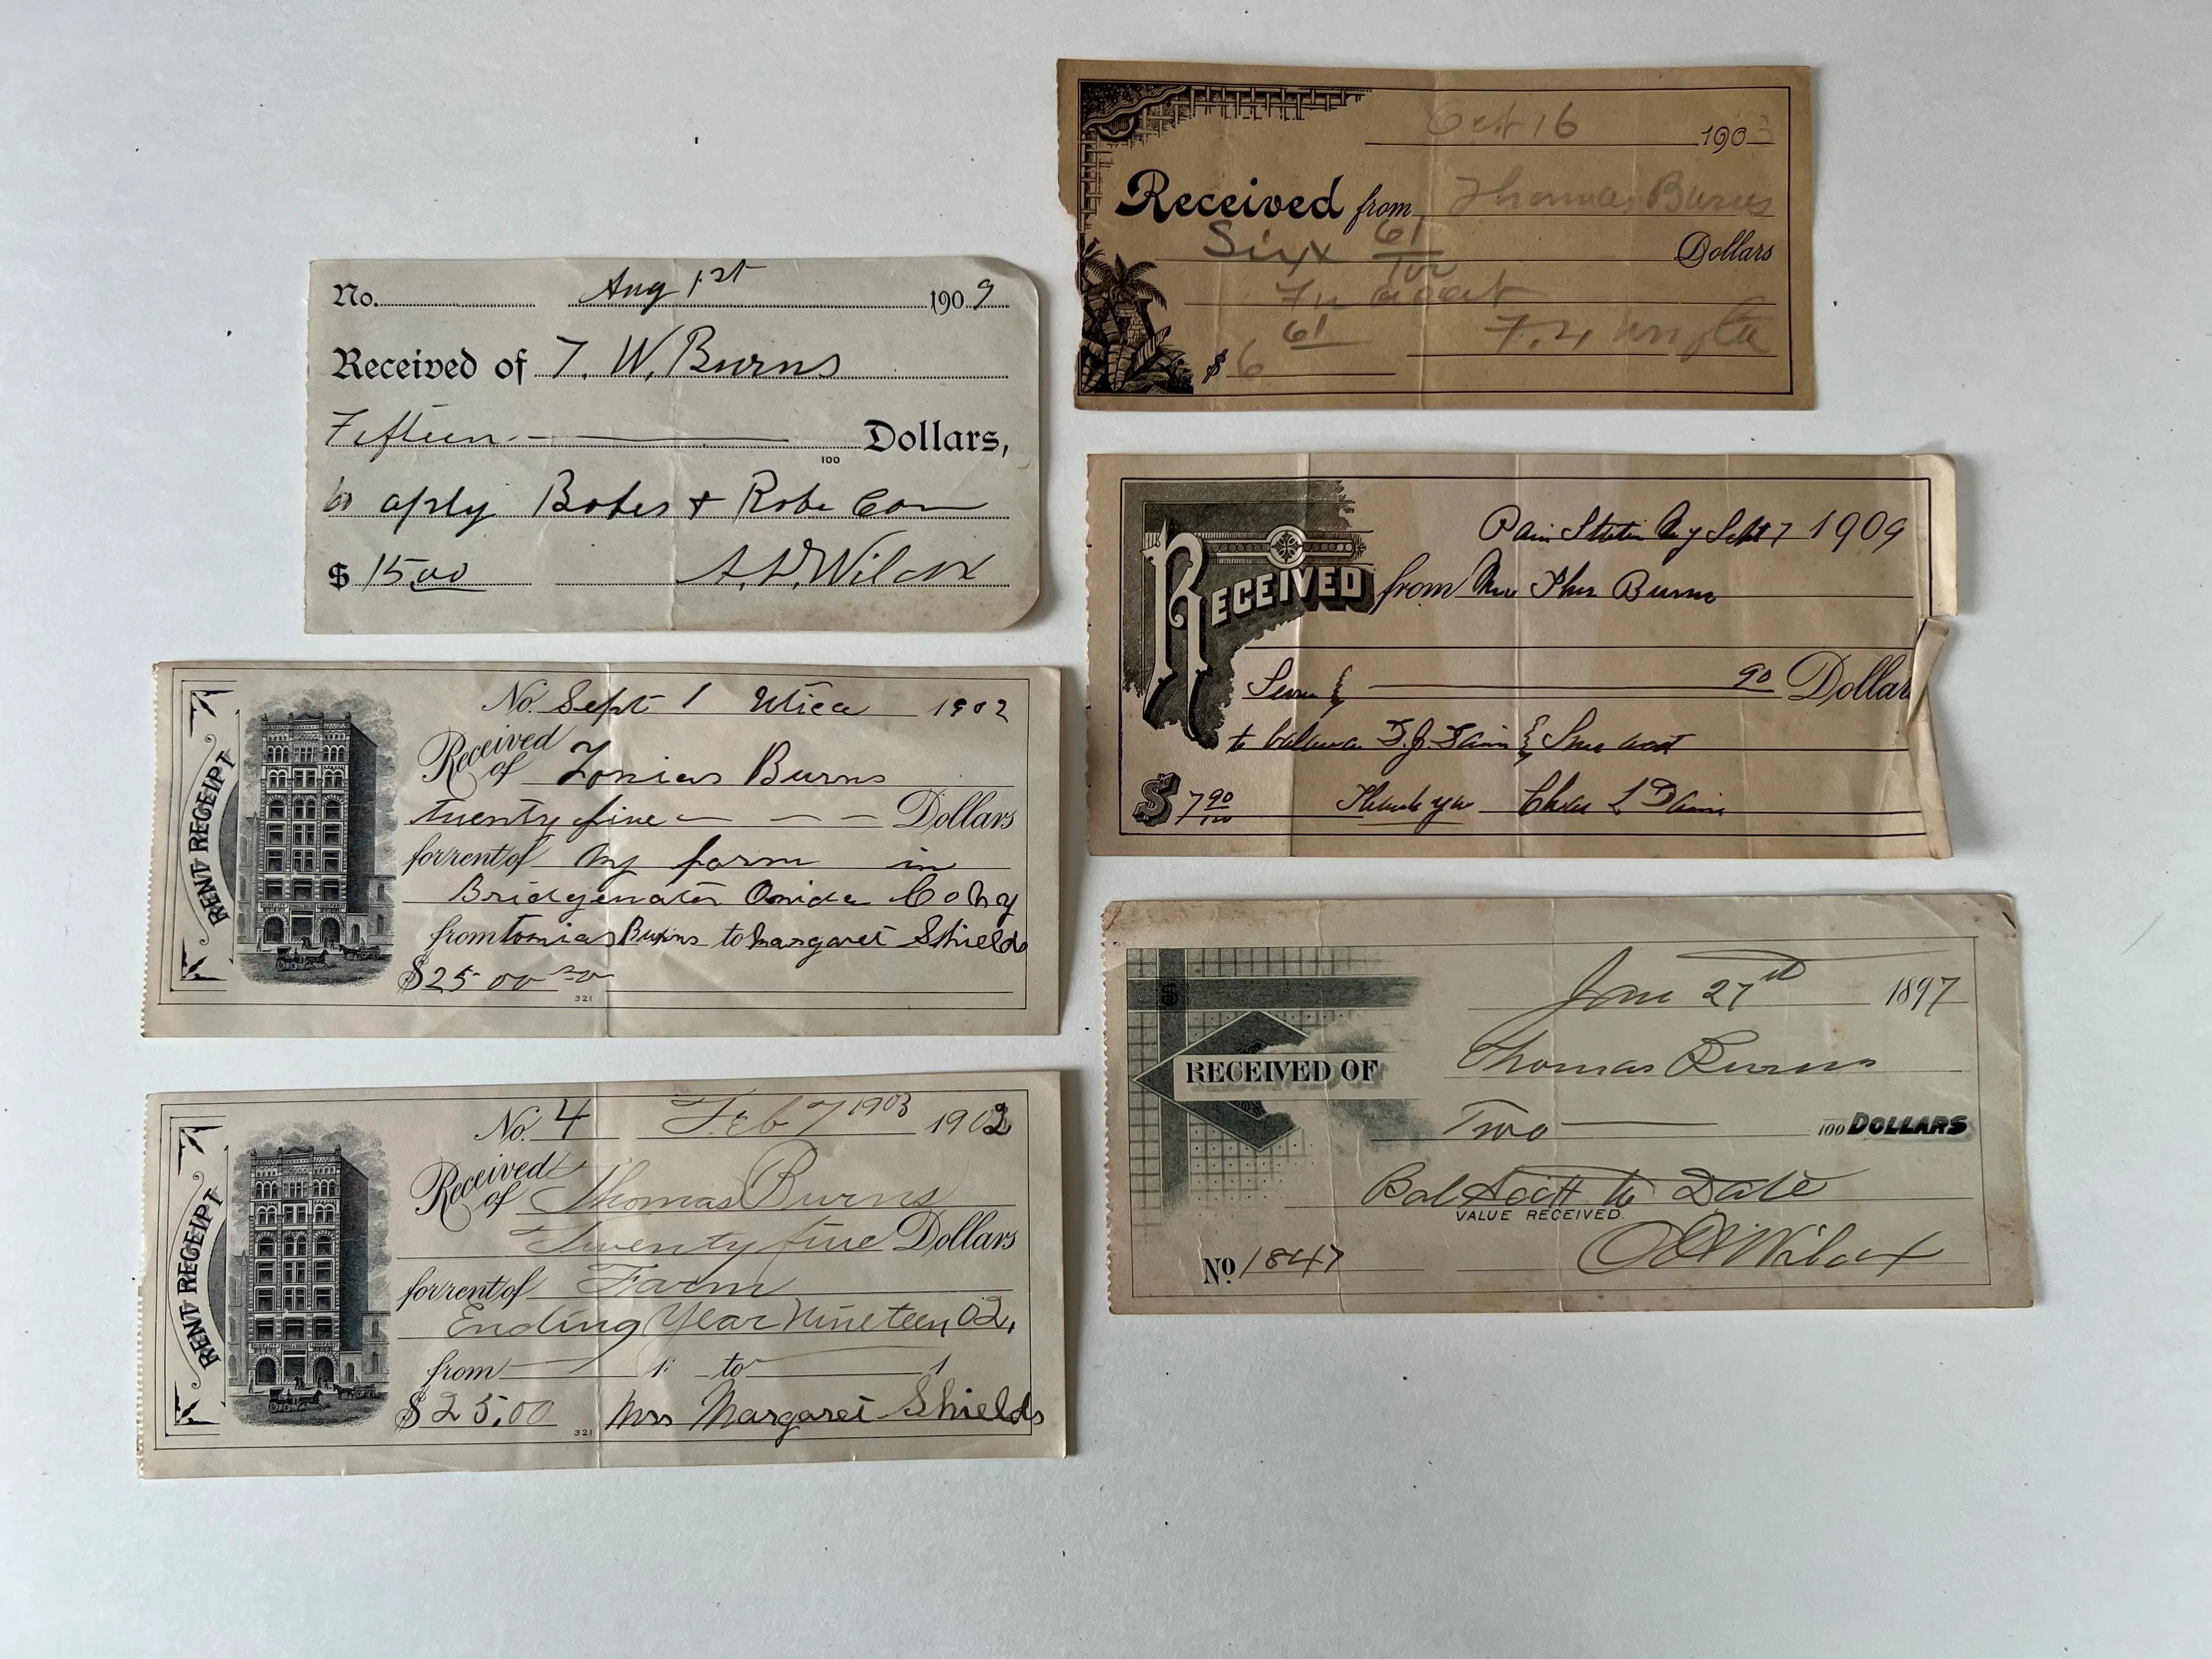 No. Aug 1st 1909
Received of T. W. Burns
Fifteen Dollars,
100
to aply Bobes + Robe Con
$ 15.00 A. D. Wilcox
RENT RECEIPT
No. Sept 1 Utica 1902
Received
of Tomias Burns
twenty five Dollars
for rent of my farm in
Bridgewater Onida Co NY
from tomias Burns to Margaret Shields
$25.00
321
RENT RECEIPT
No. 4 Feb 7 1903 1902
Received
of Thomas Burns
Twenty five Dollars
for rent of Farm
Ending Year Nineteen 02,
from 1 to 1
$25.00 Mrs Margaret Shields
321
Oct 16 1903
Received from Thomas Burns
Six 61/100 Dollars
$ 6 61
Sept 7 1909
RECEIVED from Thos Burns
Seven & 90 Dollar
to balance & Sons acct
$ 7 90/100 Thank you Chas L
27th 1897
RECEIVED OF Thomas Burns
Two 100 DOLLARS
Bal Acct to Date
VALUE RECEIVED
No 1847 Wilcox